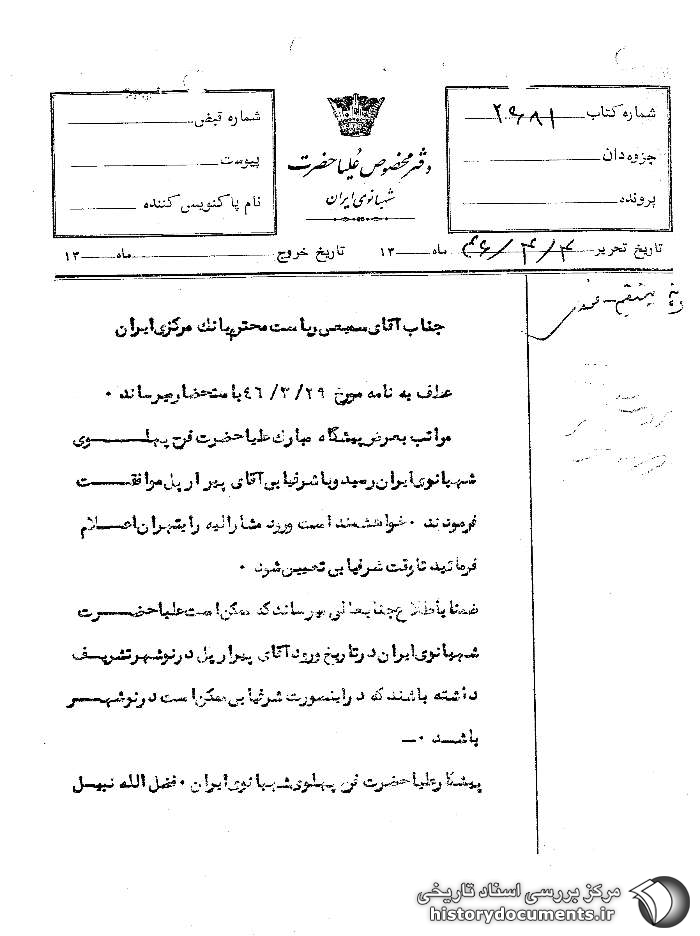 شماره کتاب ۲۶۸۱
جزوه‌دان
پرونده
دفتر مخصوص علیا حضرت
شهبانوی ایران
شماره قبض
پیوست
نام پاکنویس کننده
تاریخ تحریر ۴۶/۴/۴ ماه ۱۳
تاریخ خروج ماه ۱۳
جناب آقای سمیعی ریاست محترم بانک مرکزی ایران
عطف به نامه مورخ ۴۶/۳/۲۹ با ستحضار میرساند ۰
مراتب بعرض پیشگاه مبارک علیا حضرت فرح پهلوی
شهبانوی ایران رسید و با شرفیابی آقای پیر اریل موافقت
فرمودند ۰ خواهشمند است ورود مشارالیه را بتهران اعلام
فرمائید تا وقت شرفیابی تعیین شود ۰
ضمنا باطلاع جنابعالی میرساند که ممکن است علیا حضرت
شهبانوی ایران در تاریخ ورود آقای پیر اریل در نوشهر تشریف
داشته باشند که در اینصورت شرفیابی ممکن است در نوشهر
باشد ۰ــ
پیشکار علیا حضرت فرح پهلوی شهبانوی ایران ۰ فضل الله نبیل
مرکز بررسی اسناد تاریخی
historydocuments.ir